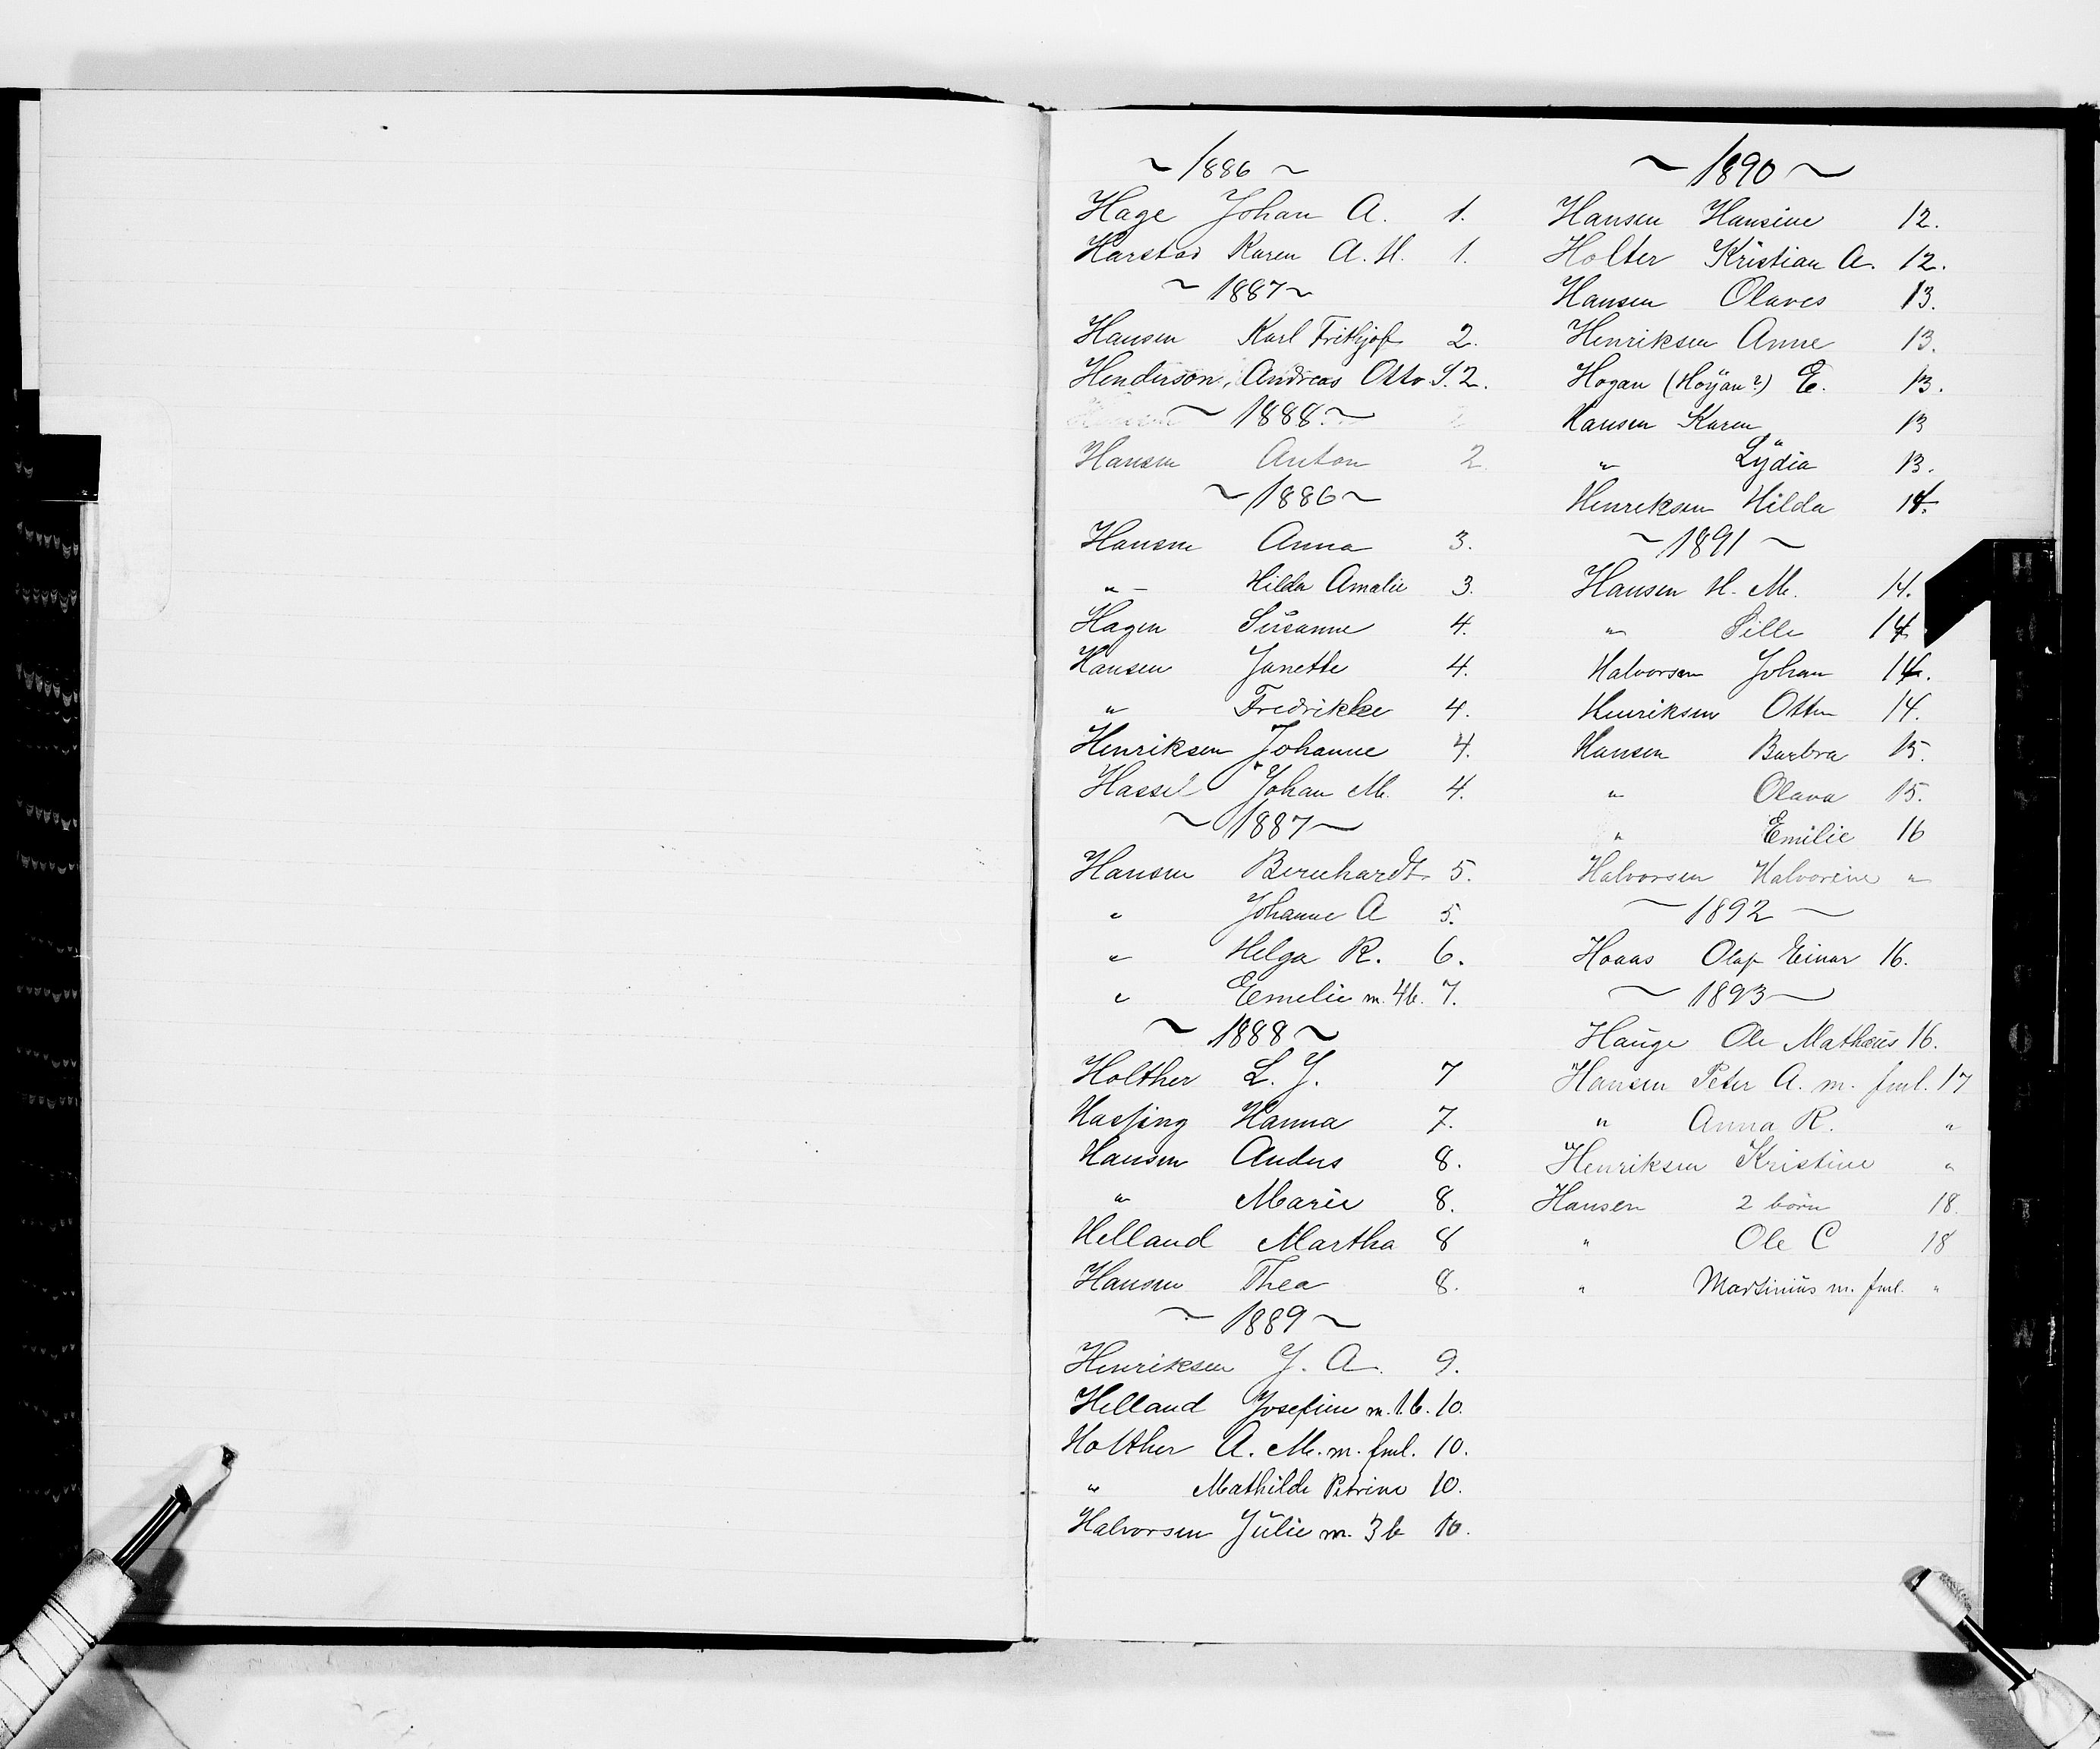 ~ 1886 ~
Hage Johan A. 1.
Harstad Karen A. H. 1.
~ 1887 ~
Hansen Karl Frithjof 2.
Henderson, Andreas Otto S. 2.
~ 1888. ~
Hansen Anton 2
~ 1886 ~
Hansen Anna 3.
" - Hilda Amalie 3.
Hagen Susanne 4.
Hansen Janette 4.
" Fredrikke 4.
Henriksen Johanne 4.
Hassel Johan M. 4.
~ 1887 ~
Hansen Bernhardt 5.
" Johanne A 5.
" Helga R. 6.
" Emelie m. 4 b. 7.
~ 1888 ~
Holther L. J. 7
Hanna 7.
Hansen Anders 8.
" Marie 8.
Helland Martha 8
Hansen Thea 8.
~ 1889 ~
Henriksen J. A. 9.
Helland Josefine m. 1 b. 10.
Holther A. M. m. fml. 10.
" Mathilde Petrine 10.
Halvorsen Julie m. 3 b 10.
~ 1890 ~
Hansen Hansine 12.
Holter Kristian A. 12.
Hansen Olaves 13.
Henriksen Anne 13.
Hogan (Höyan?) E. 13.
Hansen Karen 13
" Lydia 13.
Henreksen Hilda 14.
~ 1891 ~
Hansen H. M. 14.
" Sille 14
Halvorsen Johan 14.
Henriksen Otto 14.
Hansen Barbra 15.
" Olava 15.
" Emilie 16
Halvorsen Halvorine "
~ 1892 ~
Haaas Olaf Einar 16.
~ 1893 ~
Hauge Ole Mathæus 16.
Hansen Peter A. m. fml. 17
" Anna R. "
Henriksen Kristine "
Hansen 2 börn 18.
" Ole C 18
" Martinius m. fml. "